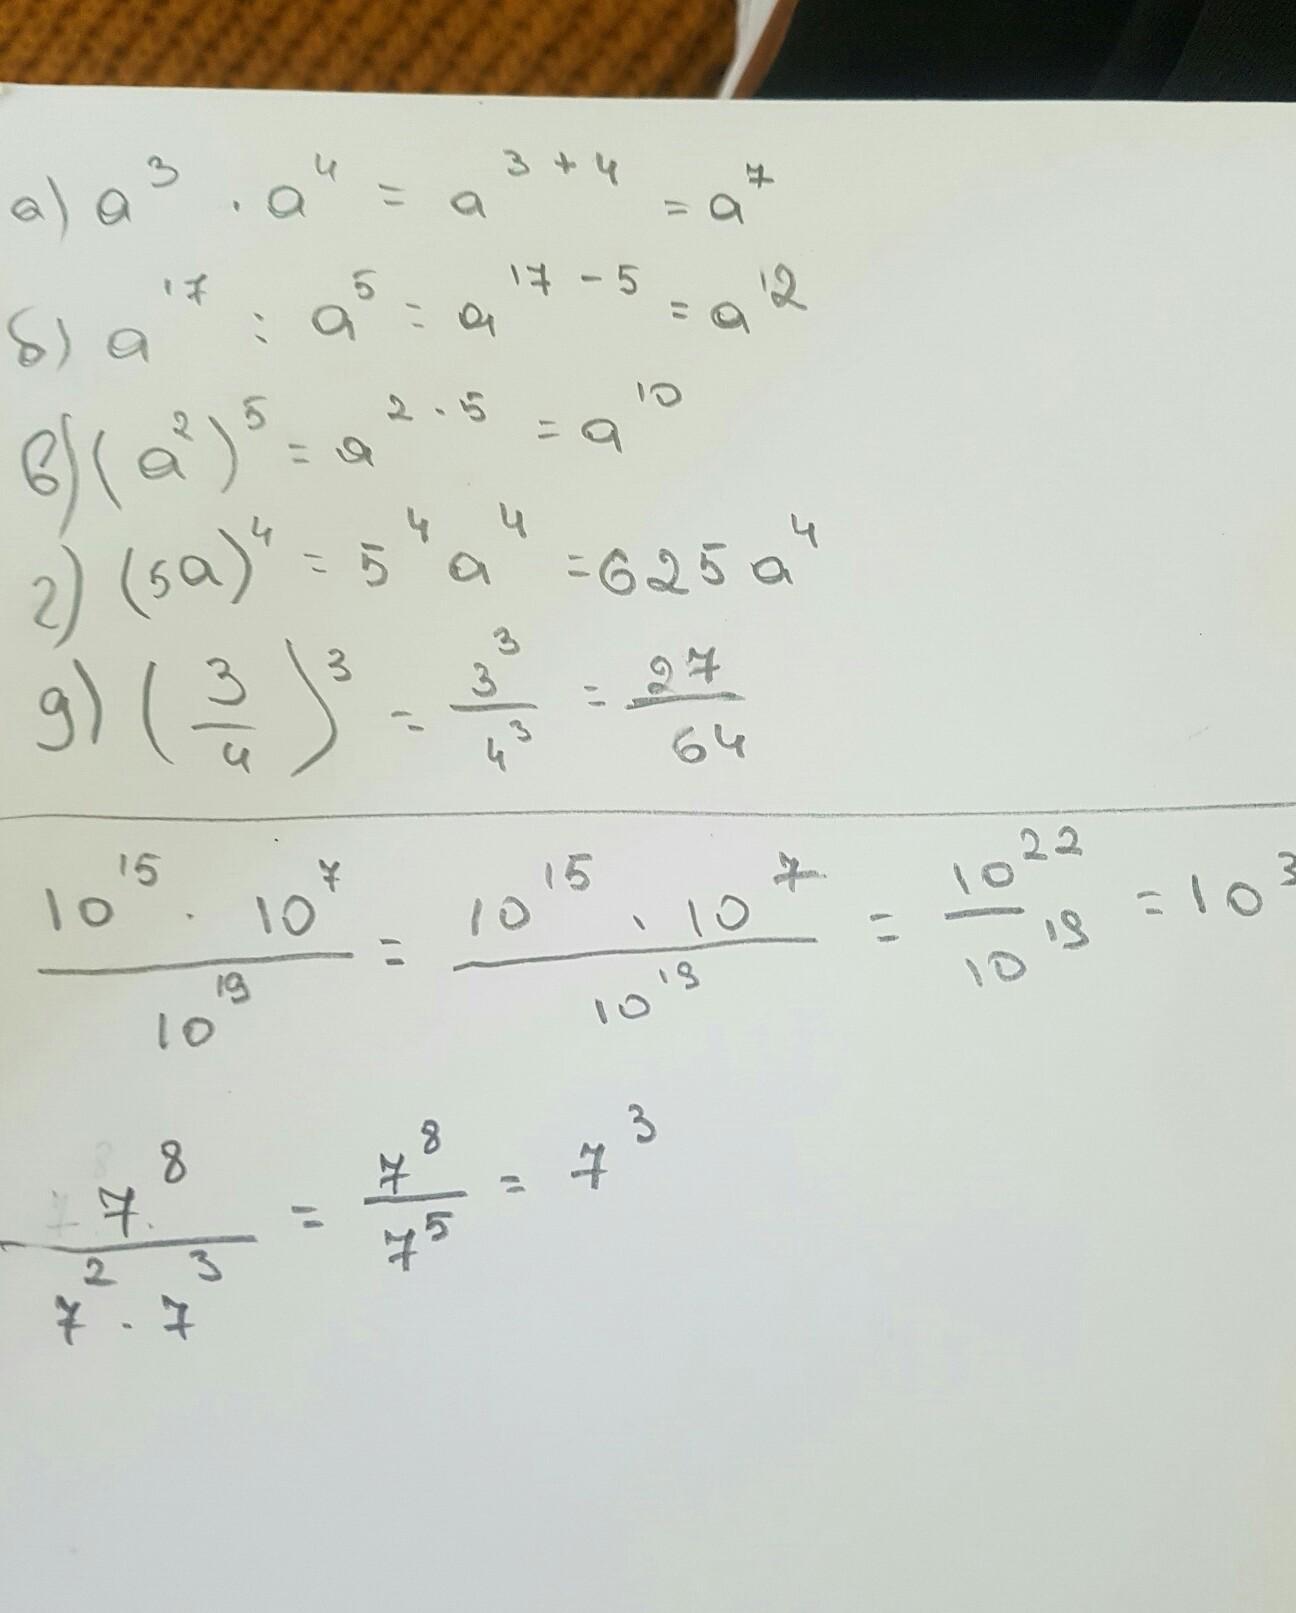 а) a³ · a⁴ = a³⁺⁴ = a⁷
б) a¹⁷ : a⁵ = a¹⁷⁻⁵ = a¹²
в) (a²)⁵ = a²·⁵ = a¹⁰
г) (5a)⁴ = 5⁴ a⁴ = 625 a⁴
д) (3/4)³ = 3³/4³ = 27/64
10¹⁵ · 10⁷ / 10¹⁹ = 10¹⁵ · 10⁷ / 10¹⁹ = 10²² / 10¹⁹ = 10³
7⁸ / 7² · 7³ = 7⁸ / 7⁵ = 7³